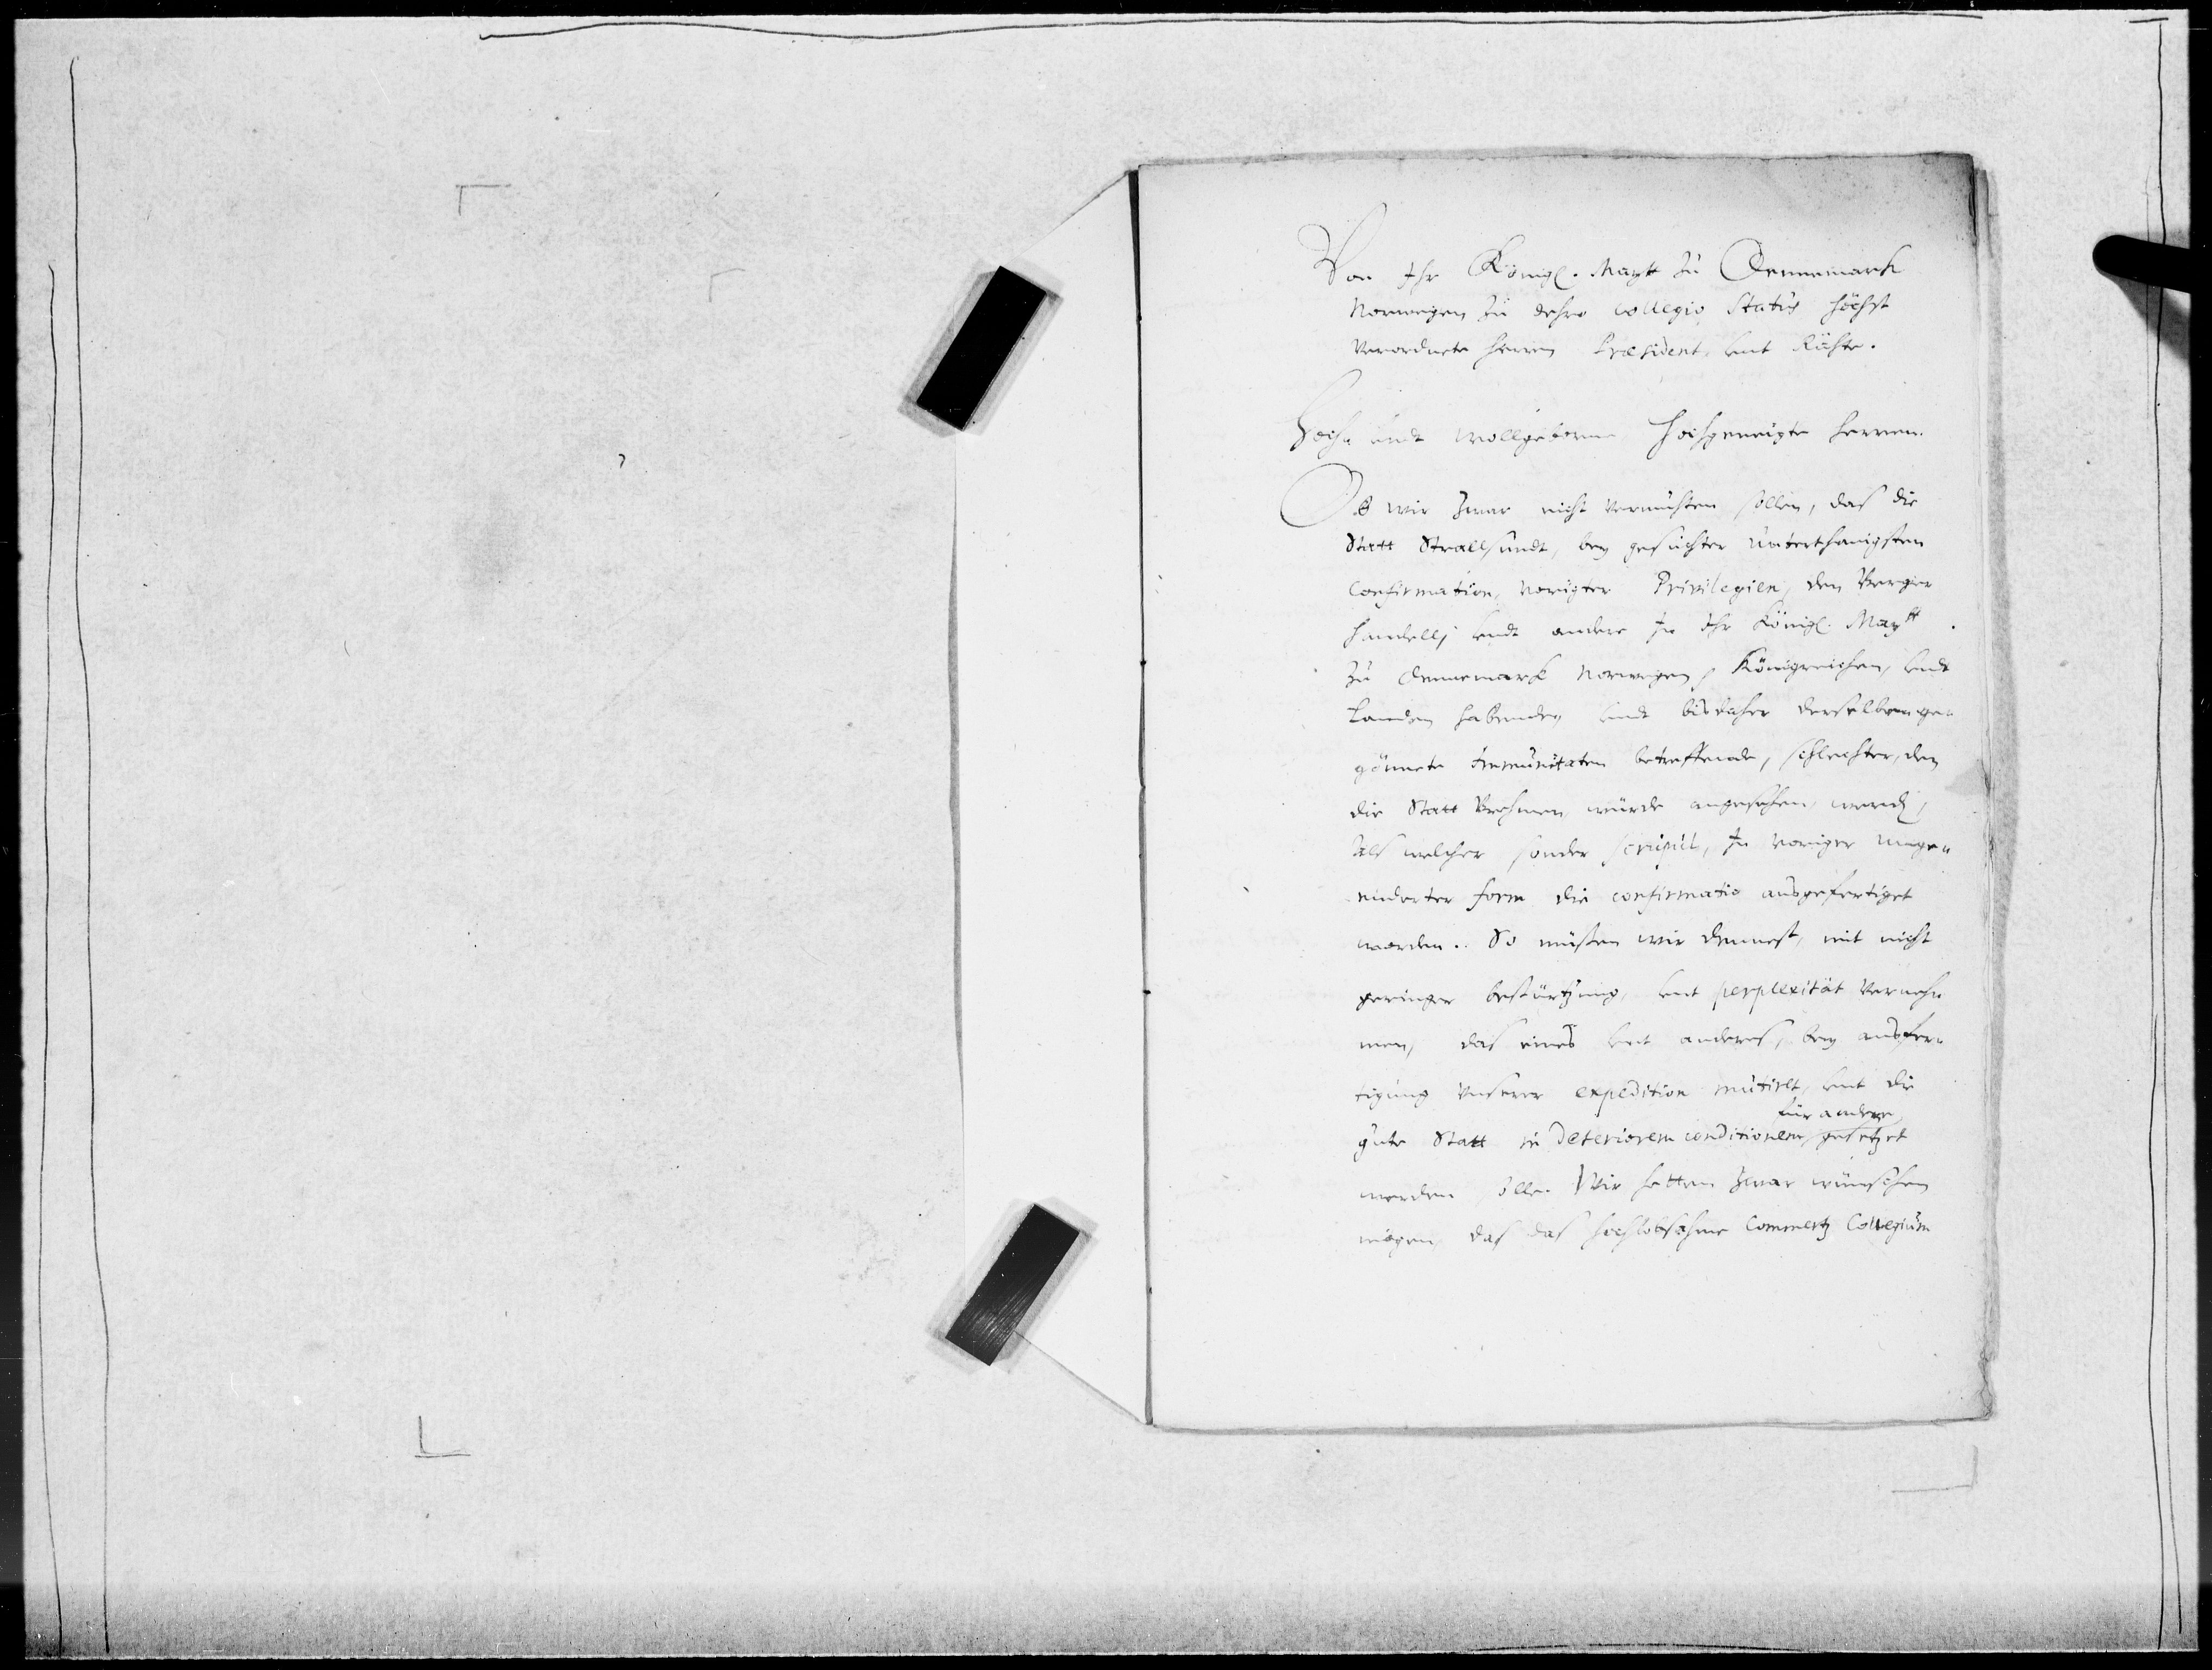 Von Ihr Königl. Maytt zu Dennemarck
Norwegen zu dehro Collegio Status höchst
Verordnete Herren Præsident, undt Rähte.
Hoch- undt Wollgeborne Hochgeneigte Herren.
Ob wir zwar nicht vermuhten sollen, das die
Statt Strallsundt, bey gesuchter Unterthänigsten
Confirmation, voriger Privilegien, den Berger
Handell, undt andere In Ihr Königl. Maytt
zu Dennemarck Norwegen, Königreichen, undt
Landen habenden undt bisdaher derselben ge-
gönnete Immunitaten betreffende, schlechter, den
die Statt Brehmen würde angesehen werden,
Als welcher sonder scrupul, In voriger unge-
enderter form die confirmatio ausgefertiget
worden. So müssen wir dennoch, mit nicht
geringer bestürtzung, undt perplexität verneh-
men, das eines undt anderes, bey ausfer-
tigung unserer expedition mutirt, undt die
für andere
gute Statt in deteriorem conditionem, gesetzet
werden solle. Wir hetten zwar wünschen
mögen, das das hochlobsahme Commertz Collegium